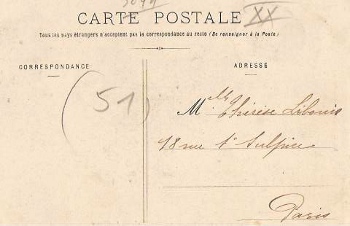 CARTE POSTALE
XX
Tous les pays étrangers n'acceptent pas la correspondance au recto (Se renseigner à la Poste)
CORRESPONDANCE
ADRESSE
(51)
Mlle Thérèse
rue St Sulpice
Paris